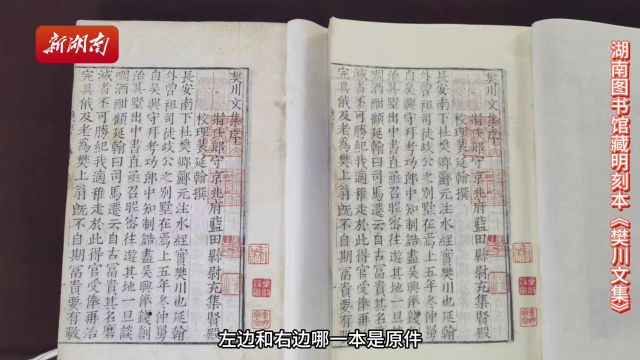 新湖南
樊川文集序
將仕郎守京兆府藍田縣尉充集賢殿
校理裴延翰撰
長安南下杜樊鄉酈元注水經實樊川也延翰
外曾祖司徒歧公之別墅在焉上五年冬仲舅
自吳興守拜考功郎中知制誥盡吳興俸錢創
治其墅出中書直亟召昵密往遊其地一旦談
啁酒酣顧延翰曰司馬遷云自古富貴其名磨
滅者不可勝紀我適稚走於此得官受俸再治
完具俄及老為樊上翁既不自期富貴要有數
樊川文集序
將仕郎守京兆府藍田縣尉充集賢殿
校理裴延翰撰
長安南下杜樊鄉酈元注水經實樊川也延翰
外曾祖司徒歧公之別墅在焉上五年冬仲舅
自吳興守拜考功郎中知制誥盡吳興俸錢創
治其墅出中書直亟召昵密往遊其地一旦談
啁酒酣顧延翰曰司馬遷云自古富貴其名磨
滅者不可勝紀我適稚走於此得官受俸再治
完具俄及老為樊上翁既不自期富貴要有數
湖南图书馆藏明刻本《樊川文集》
左边和右边哪一本是原件